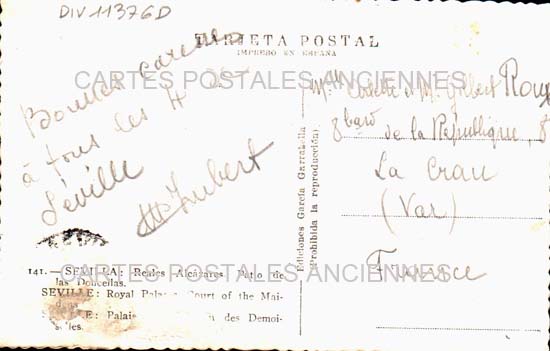 DIV 11376D
TARJETA POSTAL
IMPRESO EN ESPAÑA
CARTES POSTALES ANCIENNES
Bonnes
à tous les 4
Séville
Mlle et M. Gilbert
8 de la République, 8
La Crau
(Var)
France
Ediciones García Garrabella
(Prohibida la reproducción)
141. — (SEVILLA: Reales Alcázares. Patio de
las Doncellas.
SEVILLE: Royal Court of the Mai-
Palais des Demoi-
selles.
CARTES POSTALES ANCIENNES